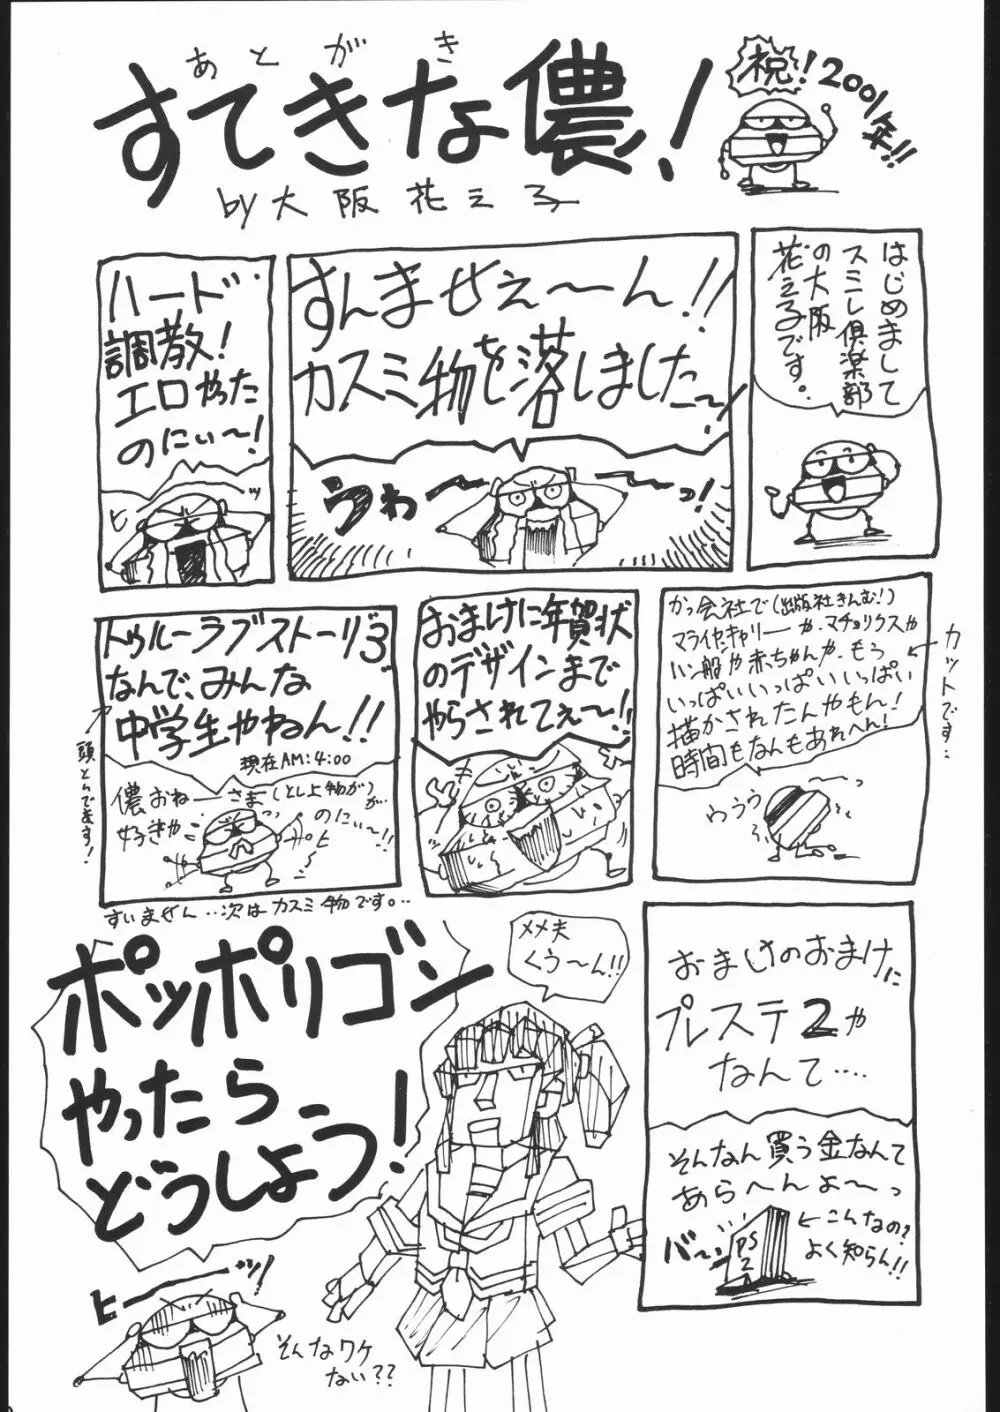 あとがき
すてきな儂!
祝!2001年!!
by 大阪花え子
はじめまして
スミレ倶楽部
の大阪
花え子です。
すんませぇ〜ん!!
カスミ物を落しました〜!
うわ〜〜っ!
ハード
調教!
エロやった
のにぃ〜!
ヒーッ
かっ会社で(出版社きんむ!)
マライヤ・キャリーや、マチョリクスや
ハン般や赤ちゃんや、もう
いっぱいいっぱいいっぱい
描かされたんやもん!
時間もなんもあれへん!
←カットです‥
わううう
おまけに年賀状
のデザインまで
やらされてぇ〜!!
トゥルーラブストーリー3
なんで、みんな
中学生やねん!!
現在AM:4:00
頭とんでます!
儂おねーさま(とし上物が)が…
好きや
のにぃ〜!!
すいません‥次はカスミ物です。‥
おまけのおまけに
プレステ2や
なんて‥‥
そんなん買う金なんて
あらへんよ〜っ
バ〜ン
PS2
←こんなの?
よく知らん!!
メメ夫
くう〜ん!!
ポッポリゴン
やったら
どうしよう!
ヒーーッ!
そんなワケ
ない??